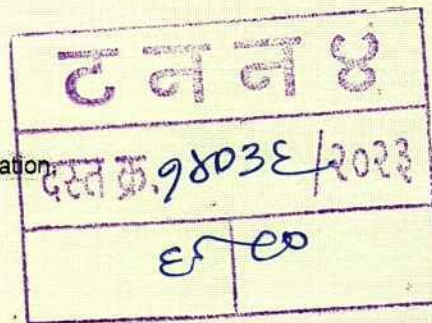 ट न न ४
ation,
दस्त क्र. १४०३६/२०२३
६ ९०